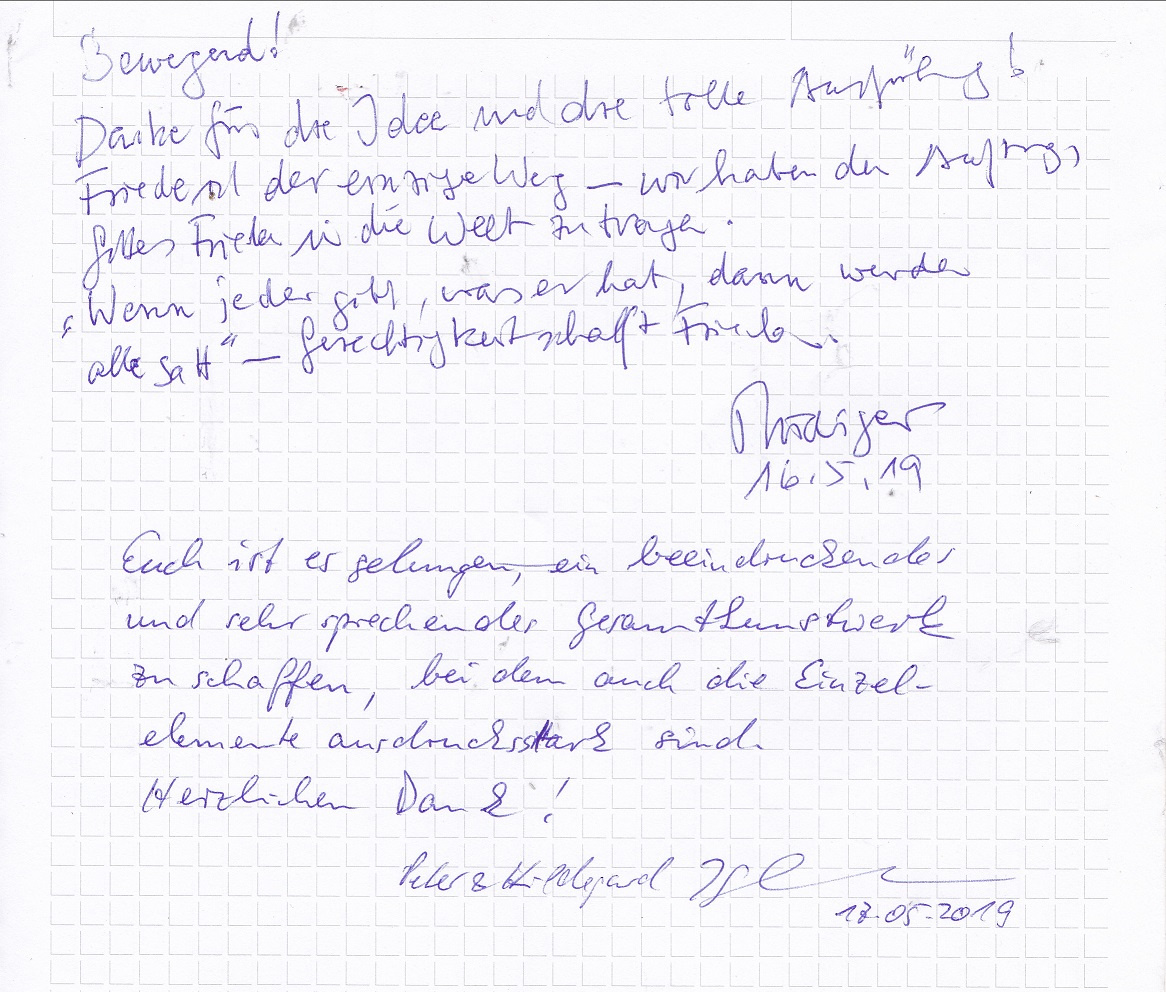 Bewegend!
Danke für die Idee und die tolle Ausführung!
Friede ist der einzige Weg – wir haben den Auftrag,
Gottes Frieden in die Welt zu tragen.
„Wenn jeder gibt, was er hat, dann werden
alle satt“ – Gerechtigkeit schafft Frieden.
16.5.19
Euch ist es gelungen, ein beeindruckendes
und sehr sprechendes Gesamtkunstwerk
zu schaffen, bei dem auch die Einzel-
elemente ausdrucksstark sind.
Herzlichen Dank!
Peter & Hildegard
17.05.2019